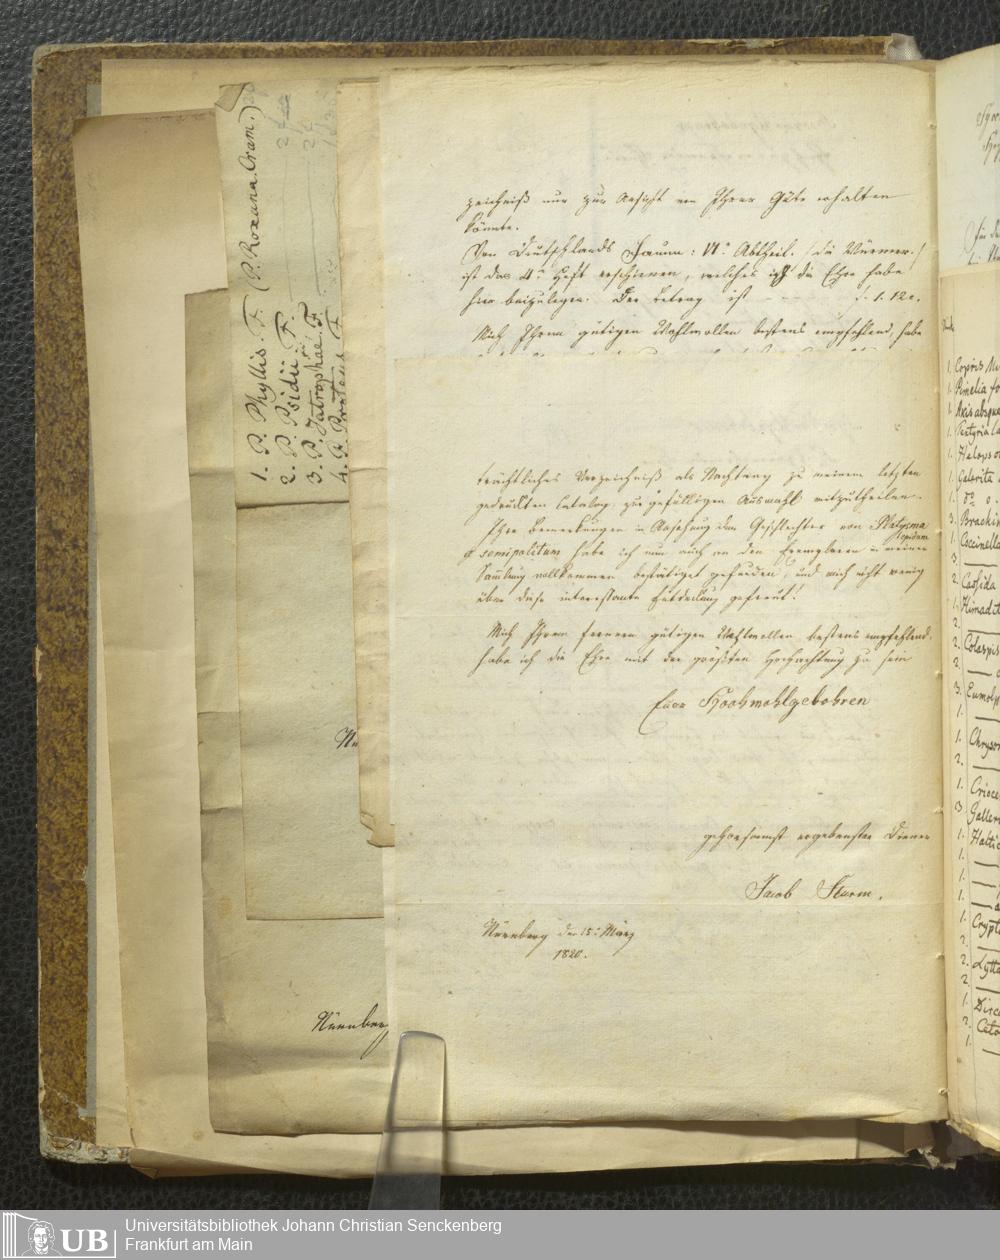 zeichniß nur zur Ansicht von Ihrer Güte erhalten
könnte.
Von Deutschlands Fauna: VI.e Abtheil. (die Würmer.)
ist das 4.e Heft erschienen, welches ich die Ehre habe
hier beizulegen. Der Betrag ist f. 1. 12 x.
Mich Ihrem gütigen Wohlwollen bestens empfehlend, habe
trächtliches Verzeichniß als Nachtrag zu meinem letzten
gedruckten Catalog zur gefälligen Auswahl mitzutheilen.
Ihre Bemerkungen in Ansehung der Geschlechter von Platysma
lepidum
et semipolitum habe ich nun auch an den Exemplaren in meiner
Sammlung vollkommen bestätiget gefunden, und mich nicht wenig
über diese interessante Entdeckung gefreut!
Mich Ihrem ferneren gütigen Wohlwollen bestens empfehlend,
habe ich die Ehre mit der größten Hochachtung zu sein
Euer Hochwohlgebohren
gehorsamst ergebenster Diener
Jacob Sturm.
Nürnberg den 15.n März
1820.
1. P. Phyllis. F. (P. Roxana. Cram.)
2. P. Psidii. F.
3. P. Jatrophae. F.
4. P. Proteus F.
Nürnberg
1. Copris
1. Pimelia
1. Akis
1. Helops
1. Galerita
3. Brachin
1. Coccinella
2. Cassida
2. Colaspis
3. Eumolp
1. Chrysom
1. Crioce
3. Galler
1. Haltic
1. Crypto
2. Lytta
1. Dirc
2. Ceto
UB
Universitätsbibliothek Johann Christian Senckenberg
Frankfurt am Main